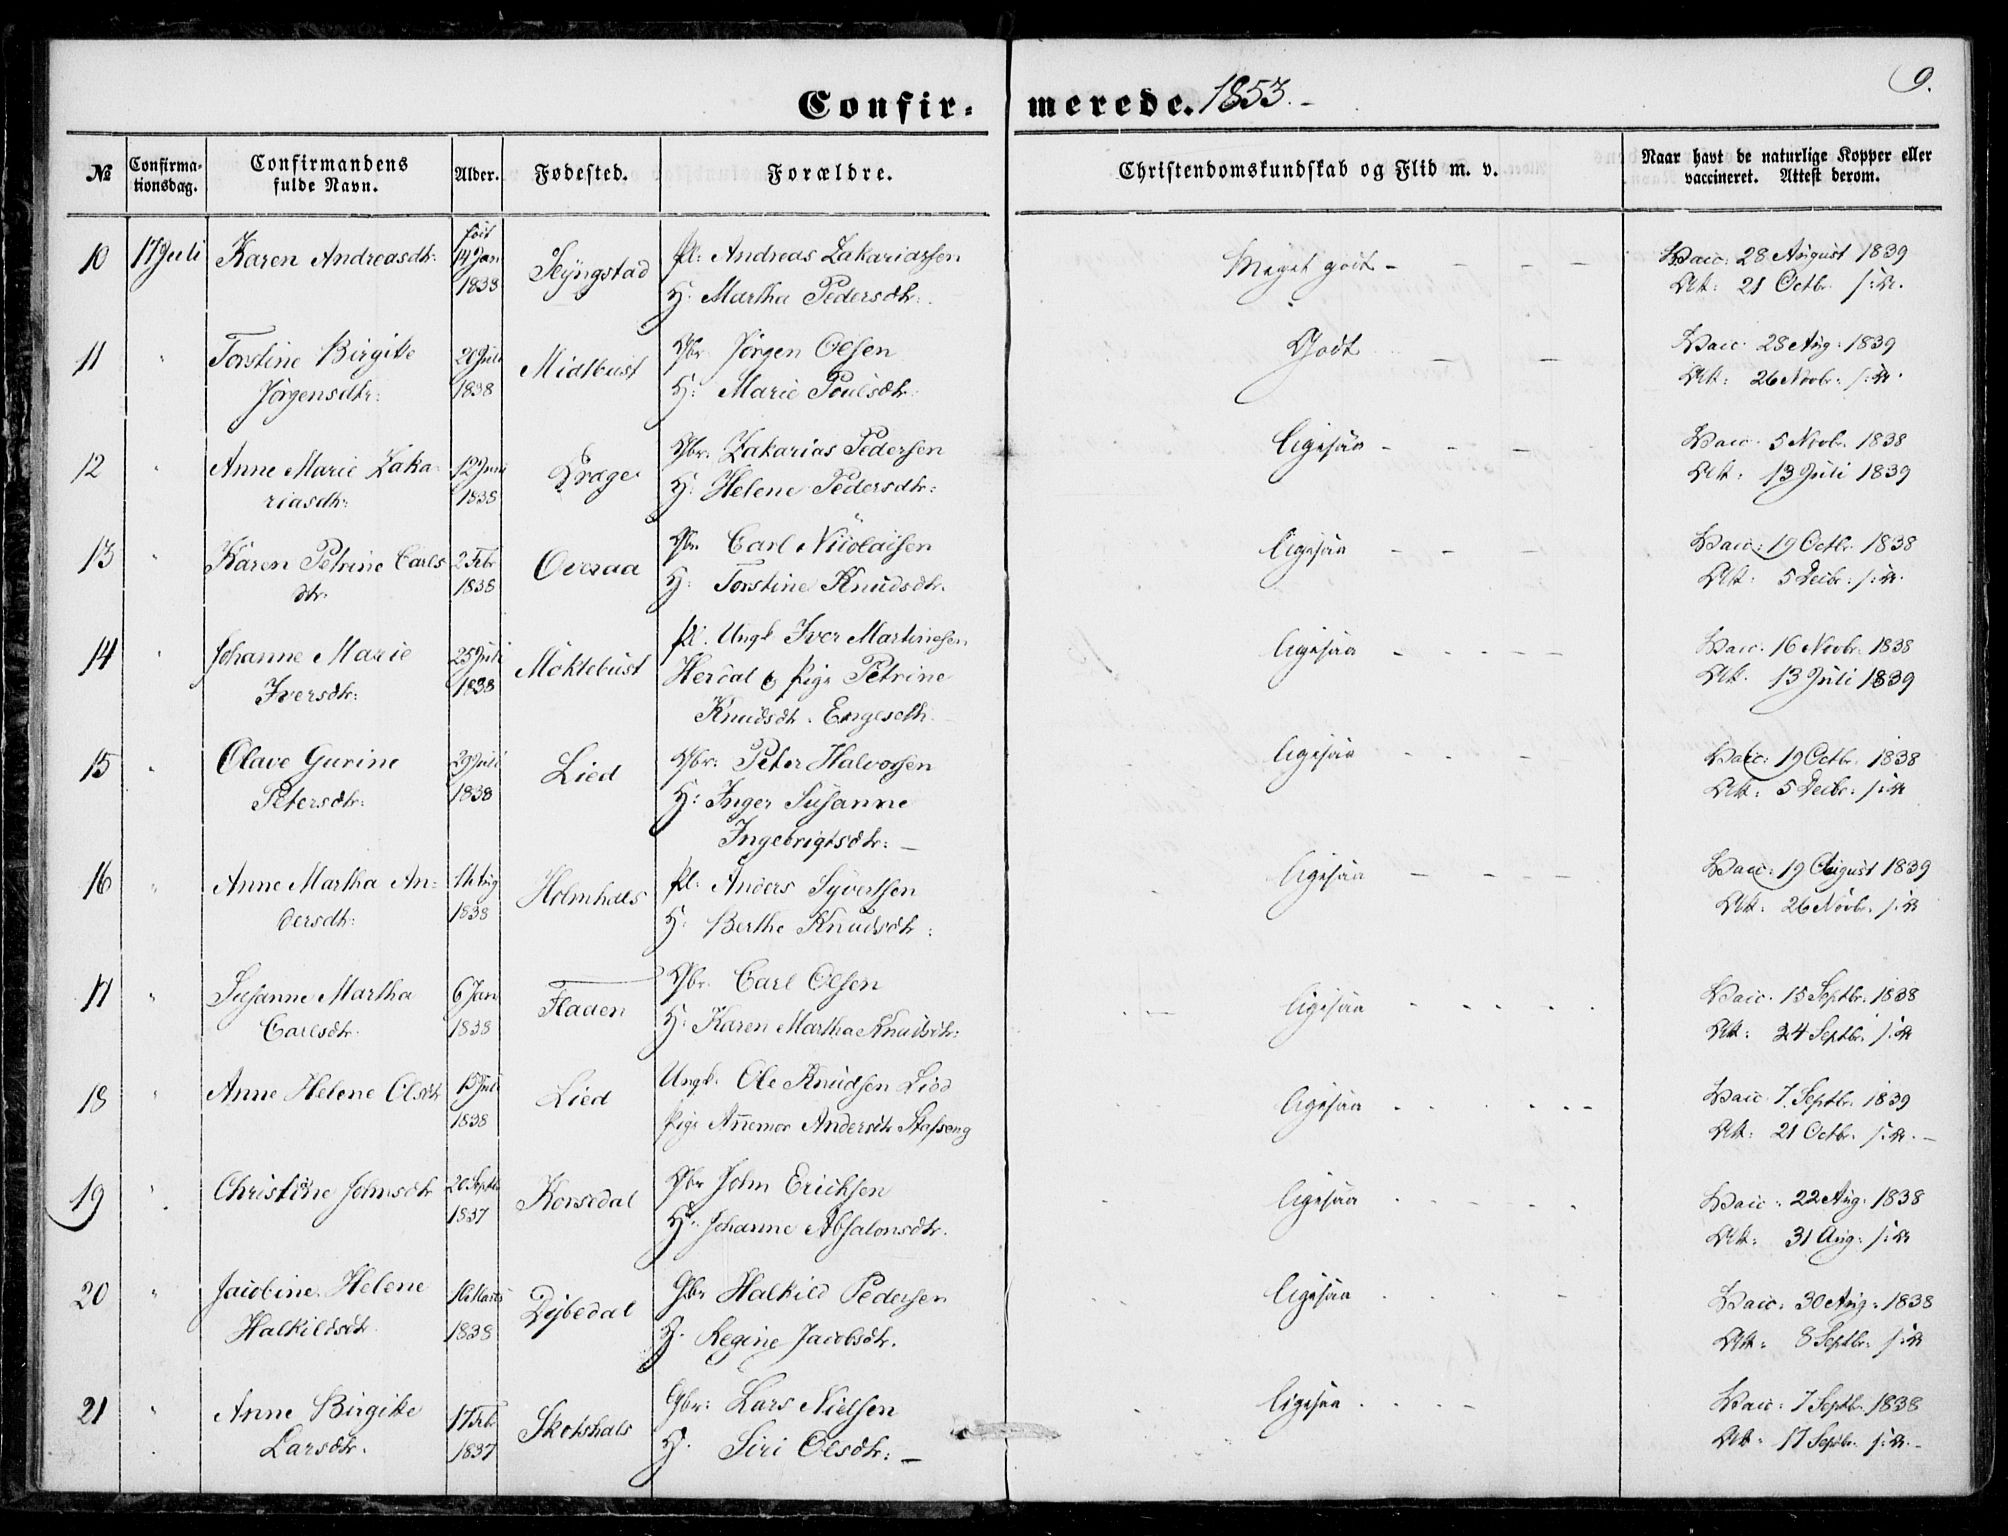 9.
Confir- merede. 1853.-
№ Confirma- Confirmandens Alder. Fødested. Forældre. Christendomskundskab og Flid m. v. Naar havt de naturlige Kopper eller
tionsdag. fulde Navn. vaccineret. Attest derom.
10 17 Juli Karen Andreasdtr: født 14 Jan 1838 pl: Andreas Zakariassen Meget godt - Vacc: 28 August 1839
H: Martha Pedersdtr: Att: 21 Octbr. s: A.
11 " Torstine Birgitte 20 Juli Midtbust Gbr. Jörgen Olsen Godt Vacc. 28 Aug: 1839
Jörgensdtr: 1838 H: Marie Poulsdtr. Att: 26 Novbr: s: A.
12 " Anne Marie Zaka- 12 Juni Gbr. Zakarias Pedersen ligesaa Vacc. 5 Novbr. 1838
riasdtr: 1838 H: Helene Pedersdtr: Att: 13 Juli 1839
13 " Karen Petrine Carls 2 Febr Overaa Gbr. Carl Nicolaisen ligesaa Vacc: 19 Octbr. 1838
dtr. 1838 H: Torstine Knudsdtr. Att: 5 Decbr: s: A.
14 " Johanne Marie 25 Juli Möklebust pl. Ungk Iver Martinesen ligesaa Vacc. 16 Novbr. 1838
Iversdtr: 1838 Herdal & pige Petrine Att. 13 Juli 1839
Knudsdt. Engeseth.
15 " Olave Gurine Juli Lied Gbr: Peter Halvorsen ligesaa Vacc: 19 Octbr. 1838
Petersdtr: 1838 H: Inger Susanne Att: 5 Decbr: s: A
Ingebrigtsdtr: -
16 " Anne Martha An- Aug Holmhals pl: Anders Syvertsen ligesaa Vacc: 19 August 1839
dersdtr: 1838 H: Berthe Knudsdtr: Att: 26 Novbr. s: A
17 " Susanne Martha 6 Jan Flaaen Gbr. Carl Olsen ligesaa Vacc. 15 Septbr. 1838
Carlsdtr. 1838 H: Karen Martha Knudsdtr: Att: 24 Septbr. s: A
18 " Anne Helene Olsdtr 15 Juli Lied Ungk. Ole Knudsen Lied ligesaa Vacc. 7. Septbr. 1839
1838 pige Annemor Andersdtr Stafseng Att: 21 Octbr. s: A. -
19 " Christine Johnsdtr 20 Septbr Korsedal Gbr John Ericksen ligesaa Vacc. 22 Aug: 1838
1837 H: Johanne Absalonsdtr. Att: 31 Aug: s: A
20 " Jacobine Helene 16 Marts Dybedal Gbr Halkild Pedersen ligesaa Vacc: 30 Aug: 1838
Halkildsdtr. 1838 H. Regine Jacobsdtr. Att: 8 Septbr: s: A
21 " Anne Birgitte 17 Febr Skotshals Gbr: Lars Nielsen ligesaa Vacc: 7 Septbr. 1838
Larsdtr. 1837 H. Siri Olsdtr: - Att: 17 Septbr. s: A. -